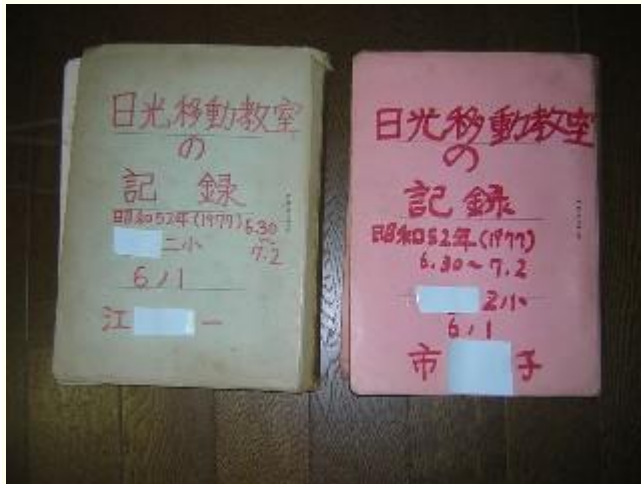 日光移動教室
の
記録
昭和52年(1977) 6.30
~
7.2
二小
6ノ1
江 一
日光移動教室
の
記録
昭和52年(1977)
6.30~7.2
2小
6ノ1
市 子